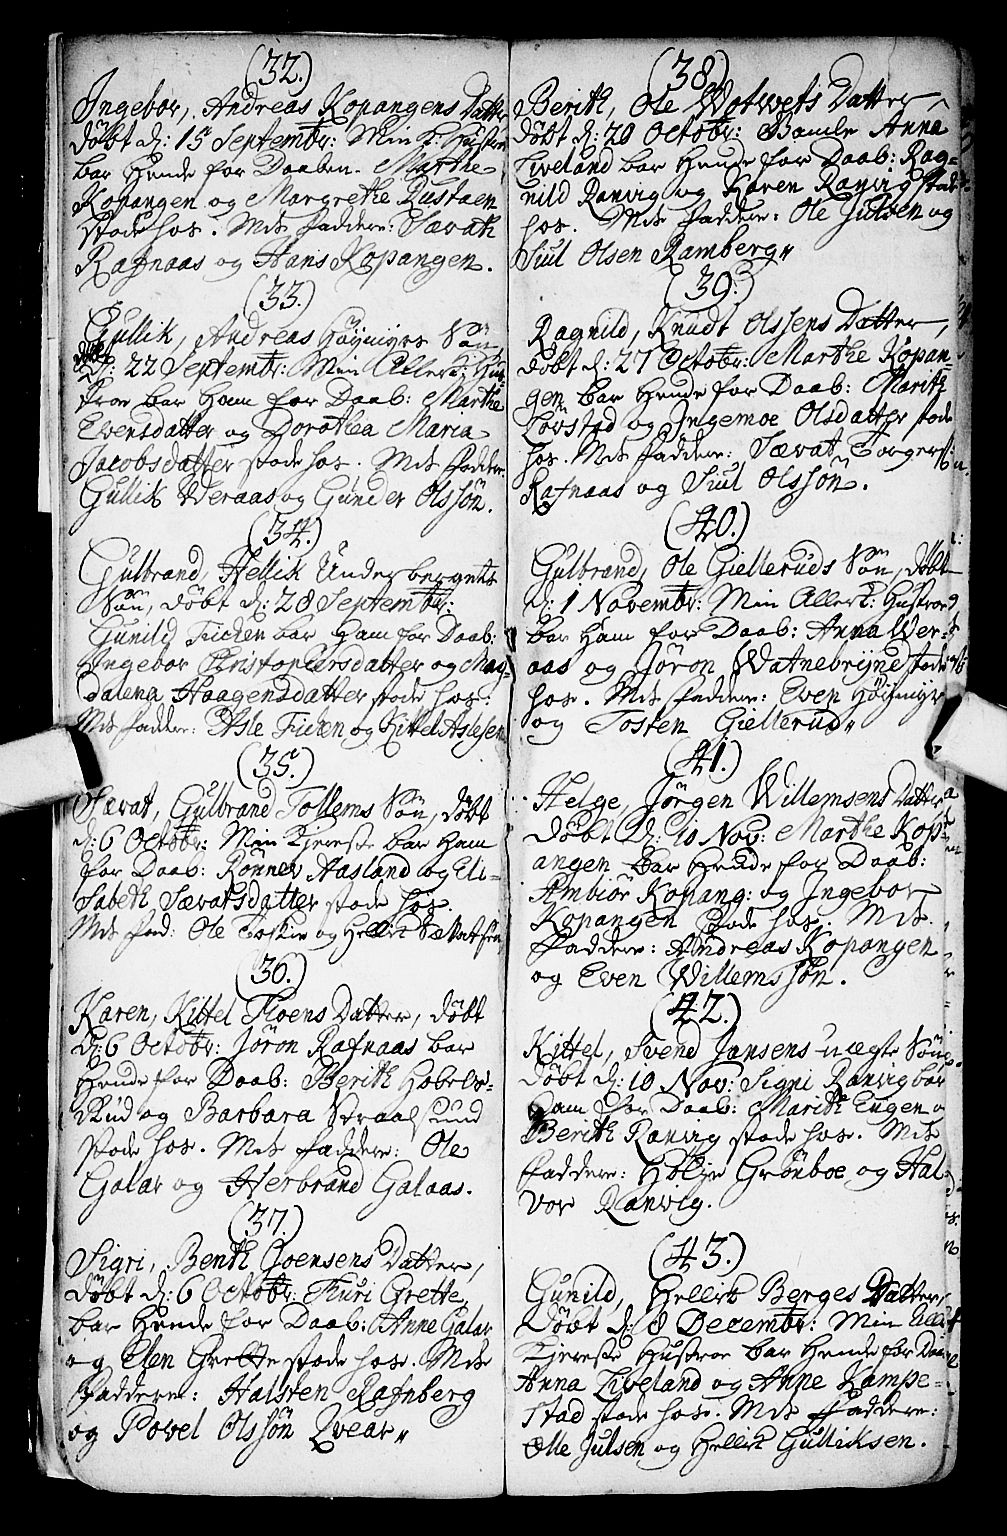 (32.)
Ingebor, Andreas Kopangens Datter
döbt d: 15 Septembr: Min K: Hustro
bar Hende for Daaben. Marthe
Kopangen og Margrethe Rustaen
stode hos. Mds faddere: Sævath
Rafnaas og Hans Kopangen.
(33.)
Gullik, Andreas Höymyrs Sön,
döbt d: 22 Septembr: Min Allerk: Hu-
stroe bar Ham for Daab: Marthe
Evensdatter og Dorothea Maria
Jacobsdatter stode hos. Mds faddere:
Gullik Weraas og Gunder Olssön.
(34.)
Gulbrand, Hellik Underbergets
Sön, döbt d: 28 Septembr:
Gunild Tiiden bar Ham for Daab:
Ingebor Christophersdatter og Mag-
dalena Haagensdatter stode hos.
Mds fadder: Asle Tiiden og Kittel Aslesen
(35.)
Sævat, Gulbrand Tollems Sön, döbt
d: 6 Octobr: Min Kjereste bar Ham
for Daab: Rönnev Aasland og Eli-
sabeth Sævatsdatter stode hos.
Mds fad: Ole Foskie og Hellik Sævatsen
(36.)
Karen, Kittel Floens Datter, döbt
d: 6 Octobr: Jöron Rafnaas bar
Hende for Daab: Berith Hobels-
Rud og Barbara Straalsund
stode hos. Mds faddere: Ole
Galar og Herbrand Galaas.
(37.)
Sigri, Benth Goensens Datter,
döbt d: 6 Octobr: Turi Grette
bar Hende for Daab: Anne Galar
og Elen Grette stode hos. Mds
faddere: Halsten Rafnberg
og Povel Olssön Lvear
(38.)
Berith, Ole Wotvets Datter,
döbt d: 20 Octobr: Gamle Anna
Liveland bar Hende for Daab: Rag-
nild Ranvig og Karen Ranvig stode
hos. Mds faddere: Ole Julsen og
Siul Olsen Ramberg
(39.)
Ragnild, Knudt Olssens Datter,
döbt d: 27 Octobr: Marthe Kopan-
gen bar Hende for Daab: Marith
Lovstad og Ingemoe Olsdatter stode
hos. Mds faddere: Sævat Torgers:
Rafnaas og Siul Olssön.
(40.)
Gulbrand, Ole Gielleruds Sön, döbt
d: 1 Novembr: Min Allerk: Hustroe
bar Ham for Daab: Anna Wer-
aas og Jöron Watnebrynd stode
hos. Mds faddere: Even Höymyr
og Tosten Gjellerud
(41.)
Helge, Jörgen Willemsens Datter
döbt D: 10 Nov: Marthe Kop-
angen bar Hende for Daab:
Ambiör Kopang: og Ingebor
Kopangen stode hos. Mds
faddere: Andreas Kopangen
og Even Willemssön.
(42.)
Kittel, Svend Jansens uægte Sön
döbt d: 10 Nov: Signi Ranvig bar
Ham for Daab: Marith Engen o
Berith Ranvig stode hos. Mds
faddere: Helje Grönboe og Hal-
vor Ranvig.
(43.)
Gunild, Hellik Berges Datter,
döbt d: 8 Decembr: Min Aller
Kjereste Hustroe bar Hende for Daab
Anna Liveland og Anne Lampe-
stad stode hos. Mds faddere:
Olle Julsen og Hellik Gulliksen.